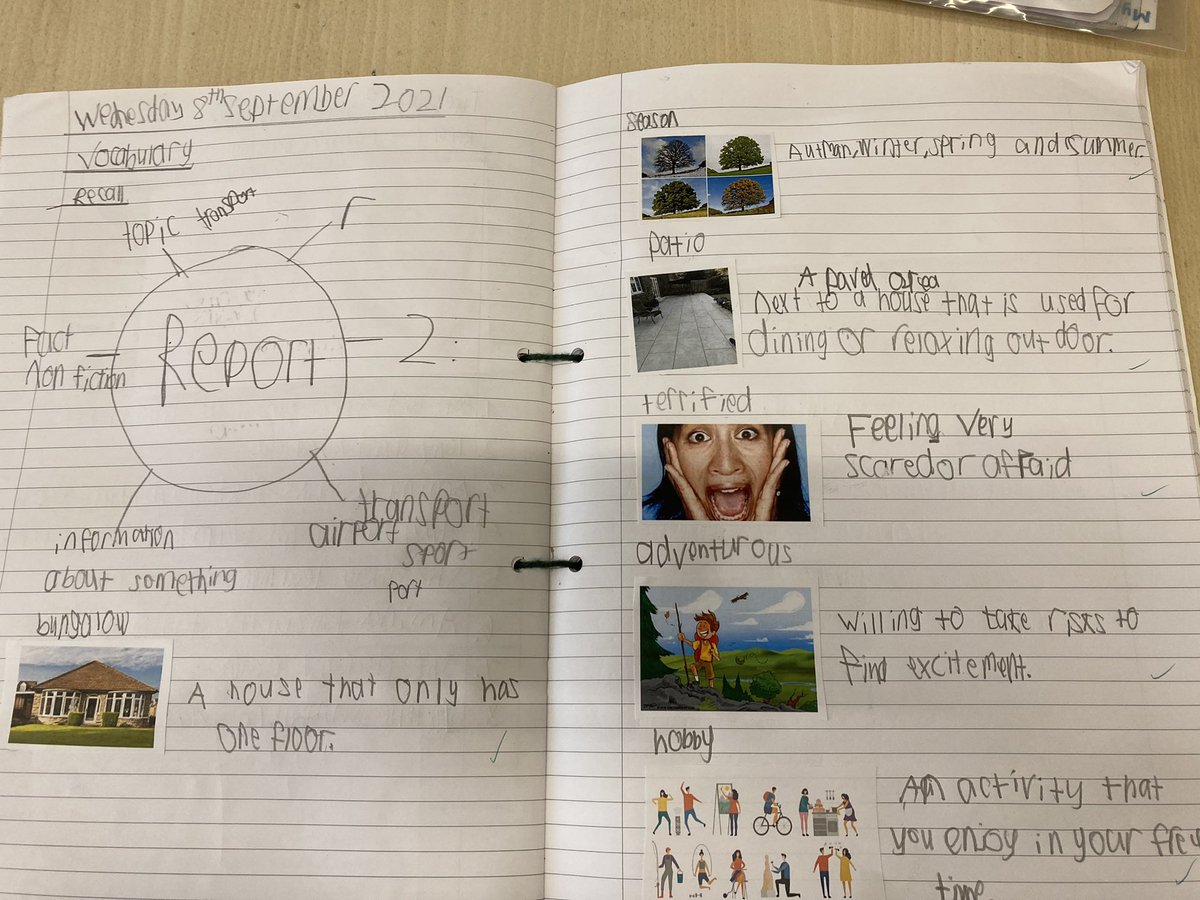 Wednesday 8th September 2021
Vocabulary
Recall
topic transport
r
Fact
Non fiction
Report
2:
information
about something
transport
airport
sport
port
bungalow
A house that only has
one floor.
season
Autman, Winter, spring and summer.
patio
A paved area
next to a house that is used for
dining or relaxing out door.
terrified
Feeling very
scared or affaid
adventurous
willing to take risks to
find excitement.
hobby
An activity that
you enjoy in your free
time
My